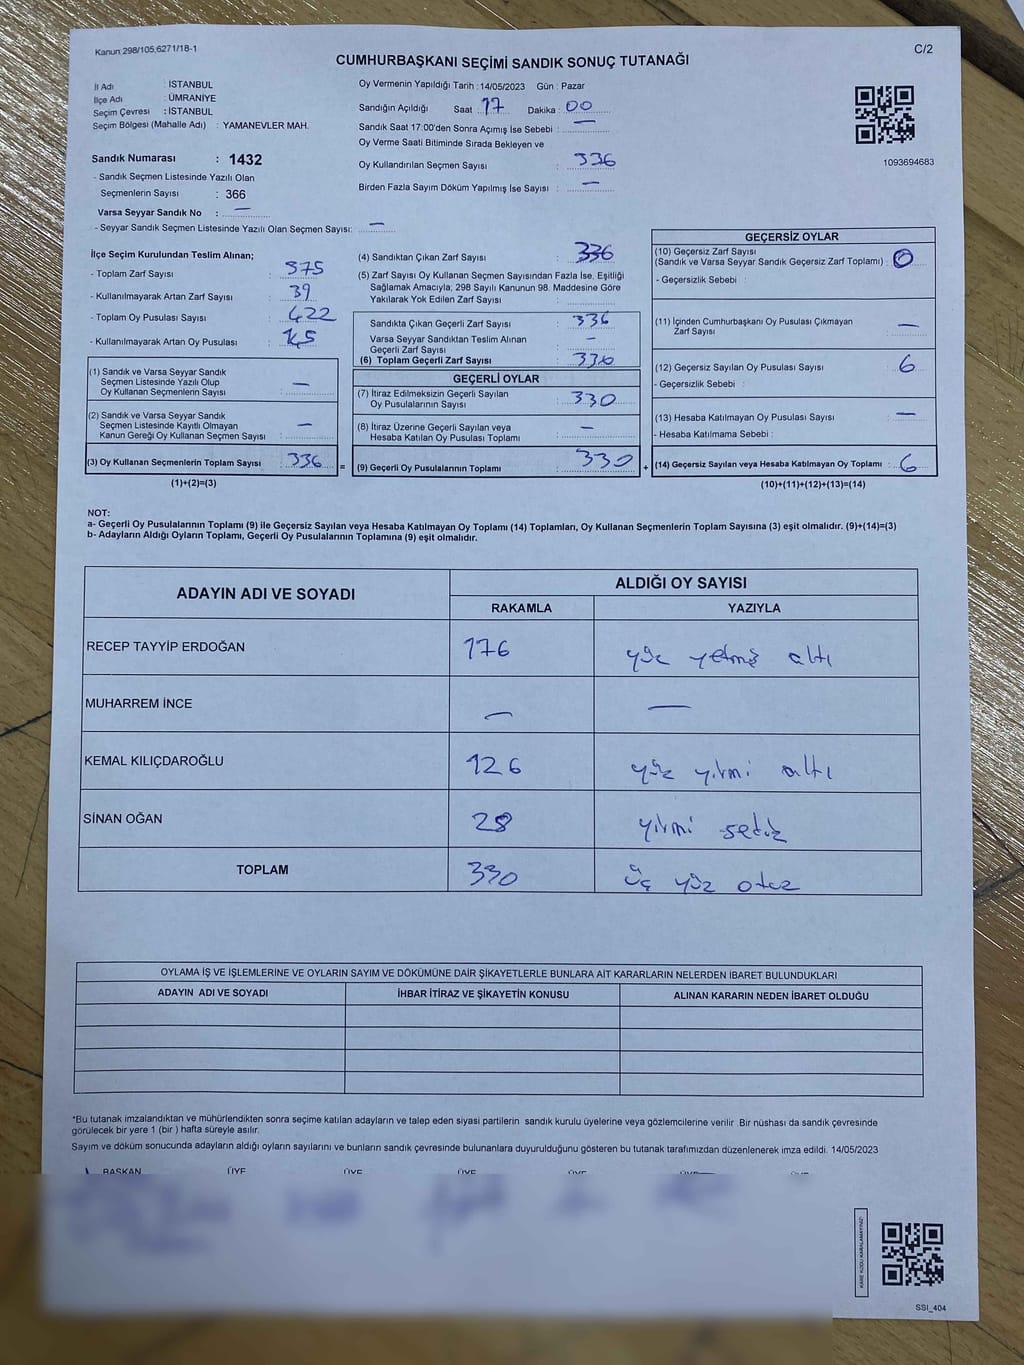 Kanun 298/105,6271/18-1
C/2
CUMHURBAŞKANI SEÇİMİ SANDIK SONUÇ TUTANAĞI
İl Adı : İSTANBUL
İlçe Adı : ÜMRANİYE
Seçim Çevresi : İSTANBUL
Seçim Bölgesi (Mahalle Adı) : YAMANEVLER MAH.
Sandık Numarası : 1432
- Sandık Seçmen Listesinde Yazılı Olan
Seçmenlerin Sayısı : 366
Varsa Seyyar Sandık No : —
- Seyyar Sandık Seçmen Listesinde Yazılı Olan Seçmen Sayısı: —
Oy Vermenin Yapıldığı Tarih : 14/05/2023 Gün : Pazar
Sandığın Açıldığı Saat : 17 Dakika : 00
Sandık Saat 17:00'den Sonra Açımış İse Sebebi : —
Oy Verme Saati Bitiminde Sırada Bekleyen ve
Oy Kullandırılan Seçmen Sayısı : 336
Birden Fazla Sayım Döküm Yapılmış İse Sayısı : —
1093694683
İlçe Seçim Kurulundan Teslim Alınan;
- Toplam Zarf Sayısı : 375
- Kullanılmayarak Artan Zarf Sayısı : 39
- Toplam Oy Pusulası Sayısı : 422
- Kullanılmayarak Artan Oy Pusulası :
(1) Sandık ve Varsa Seyyar Sandık
Seçmen Listesinde Yazılı Olup
Oy Kullanan Seçmenlerin Sayısı : —
(2) Sandık ve Varsa Seyyar Sandık
Seçmen Listesinde Kayıtlı Olmayan
Kanun Gereği Oy Kullanan Seçmen Sayısı : —
(3) Oy Kullanan Seçmenlerin Toplam Sayısı : 336
(1)+(2)=(3)
=
(4) Sandıktan Çıkan Zarf Sayısı : 336
(5) Zarf Sayısı Oy Kullanan Seçmen Sayısından Fazla İse, Eşitliği
Sağlamak Amacıyla; 298 Sayılı Kanunun 98. Maddesine Göre
Yakılarak Yok Edilen Zarf Sayısı :
Sandıkta Çıkan Geçerli Zarf Sayısı : 336
Varsa Seyyar Sandıktan Teslim Alınan
Geçerli Zarf Sayısı : —
(6) Toplam Geçerli Zarf Sayısı : 336
GEÇERLİ OYLAR
(7) İtiraz Edilmeksizin Geçerli Sayılan
Oy Pusulalarının Sayısı : 330
(8) İtiraz Üzerine Geçerli Sayılan veya
Hesaba Katılan Oy Pusulası Toplamı : —
(9) Geçerli Oy Pusulalarının Toplamı : 330
+
GEÇERSİZ OYLAR
(10) Geçersiz Zarf Sayısı
(Sandık ve Varsa Seyyar Sandık Geçersiz Zarf Toplamı) : 0
- Geçersizlik Sebebi :
(11) İçinden Cumhurbaşkanı Oy Pusulası Çıkmayan
Zarf Sayısı : —
(12) Geçersiz Sayılan Oy Pusulası Sayısı : 6
- Geçersizlik Sebebi :
(13) Hesaba Katılmayan Oy Pusulası Sayısı : —
- Hesaba Katılmama Sebebi :
(14) Geçersiz Sayılan veya Hesaba Katılmayan Oy Toplamı : 6
(10)+(11)+(12)+(13)=(14)
NOT:
a- Geçerli Oy Pusulalarının Toplamı (9) ile Geçersiz Sayılan veya Hesaba Katılmayan Oy Toplamı (14) Toplamları, Oy Kullanan Seçmenlerin Toplam Sayısına (3) eşit olmalıdır. (9)+(14)=(3)
b- Adayların Aldığı Oyların Toplamı, Geçerli Oy Pusulalarının Toplamına (9) eşit olmalıdır.
ADAYIN ADI VE SOYADI ALDIĞI OY SAYISI
RAKAMLA YAZIYLA
RECEP TAYYİP ERDOĞAN 176 yüz yetmiş altı
MUHARREM İNCE — —
KEMAL KILIÇDAROĞLU 126 yüz yirmi altı
SİNAN OĞAN 28 yirmi sekiz
TOPLAM 330 üç yüz otuz
OYLAMA İŞ VE İŞLEMLERİNE VE OYLARIN SAYIM VE DÖKÜMÜNE DAİR ŞİKAYETLERLE BUNLARA AİT KARARLARIN NELERDEN İBARET BULUNDUKLARI
ADAYIN ADI VE SOYADI İHBAR İTİRAZ VE ŞİKAYETİN KONUSU ALINAN KARARIN NEDEN İBARET OLDUĞU
*Bu tutanak imzalandıktan ve mühürlendikten sonra seçime katılan adayların ve talep eden siyasi partilerin sandık kurulu üyelerine veya gözlemcilerine verilir. Bir nüshası da sandık çevresinde
görülecek bir yere 1 (bir ) hafta süreyle asılır.
Sayım ve döküm sonucunda adayların aldığı oyların sayılarını ve bunların sandık çevresinde bulunanlara duyurulduğunu gösteren bu tutanak tarafımızdan düzenlenerek imza edildi. 14/05/2023
BAŞKAN ÜYE ÜYE ÜYE ÜYE ÜYE ÜYE
KARE KODU KARALAMAYINIZ!
SSI_404